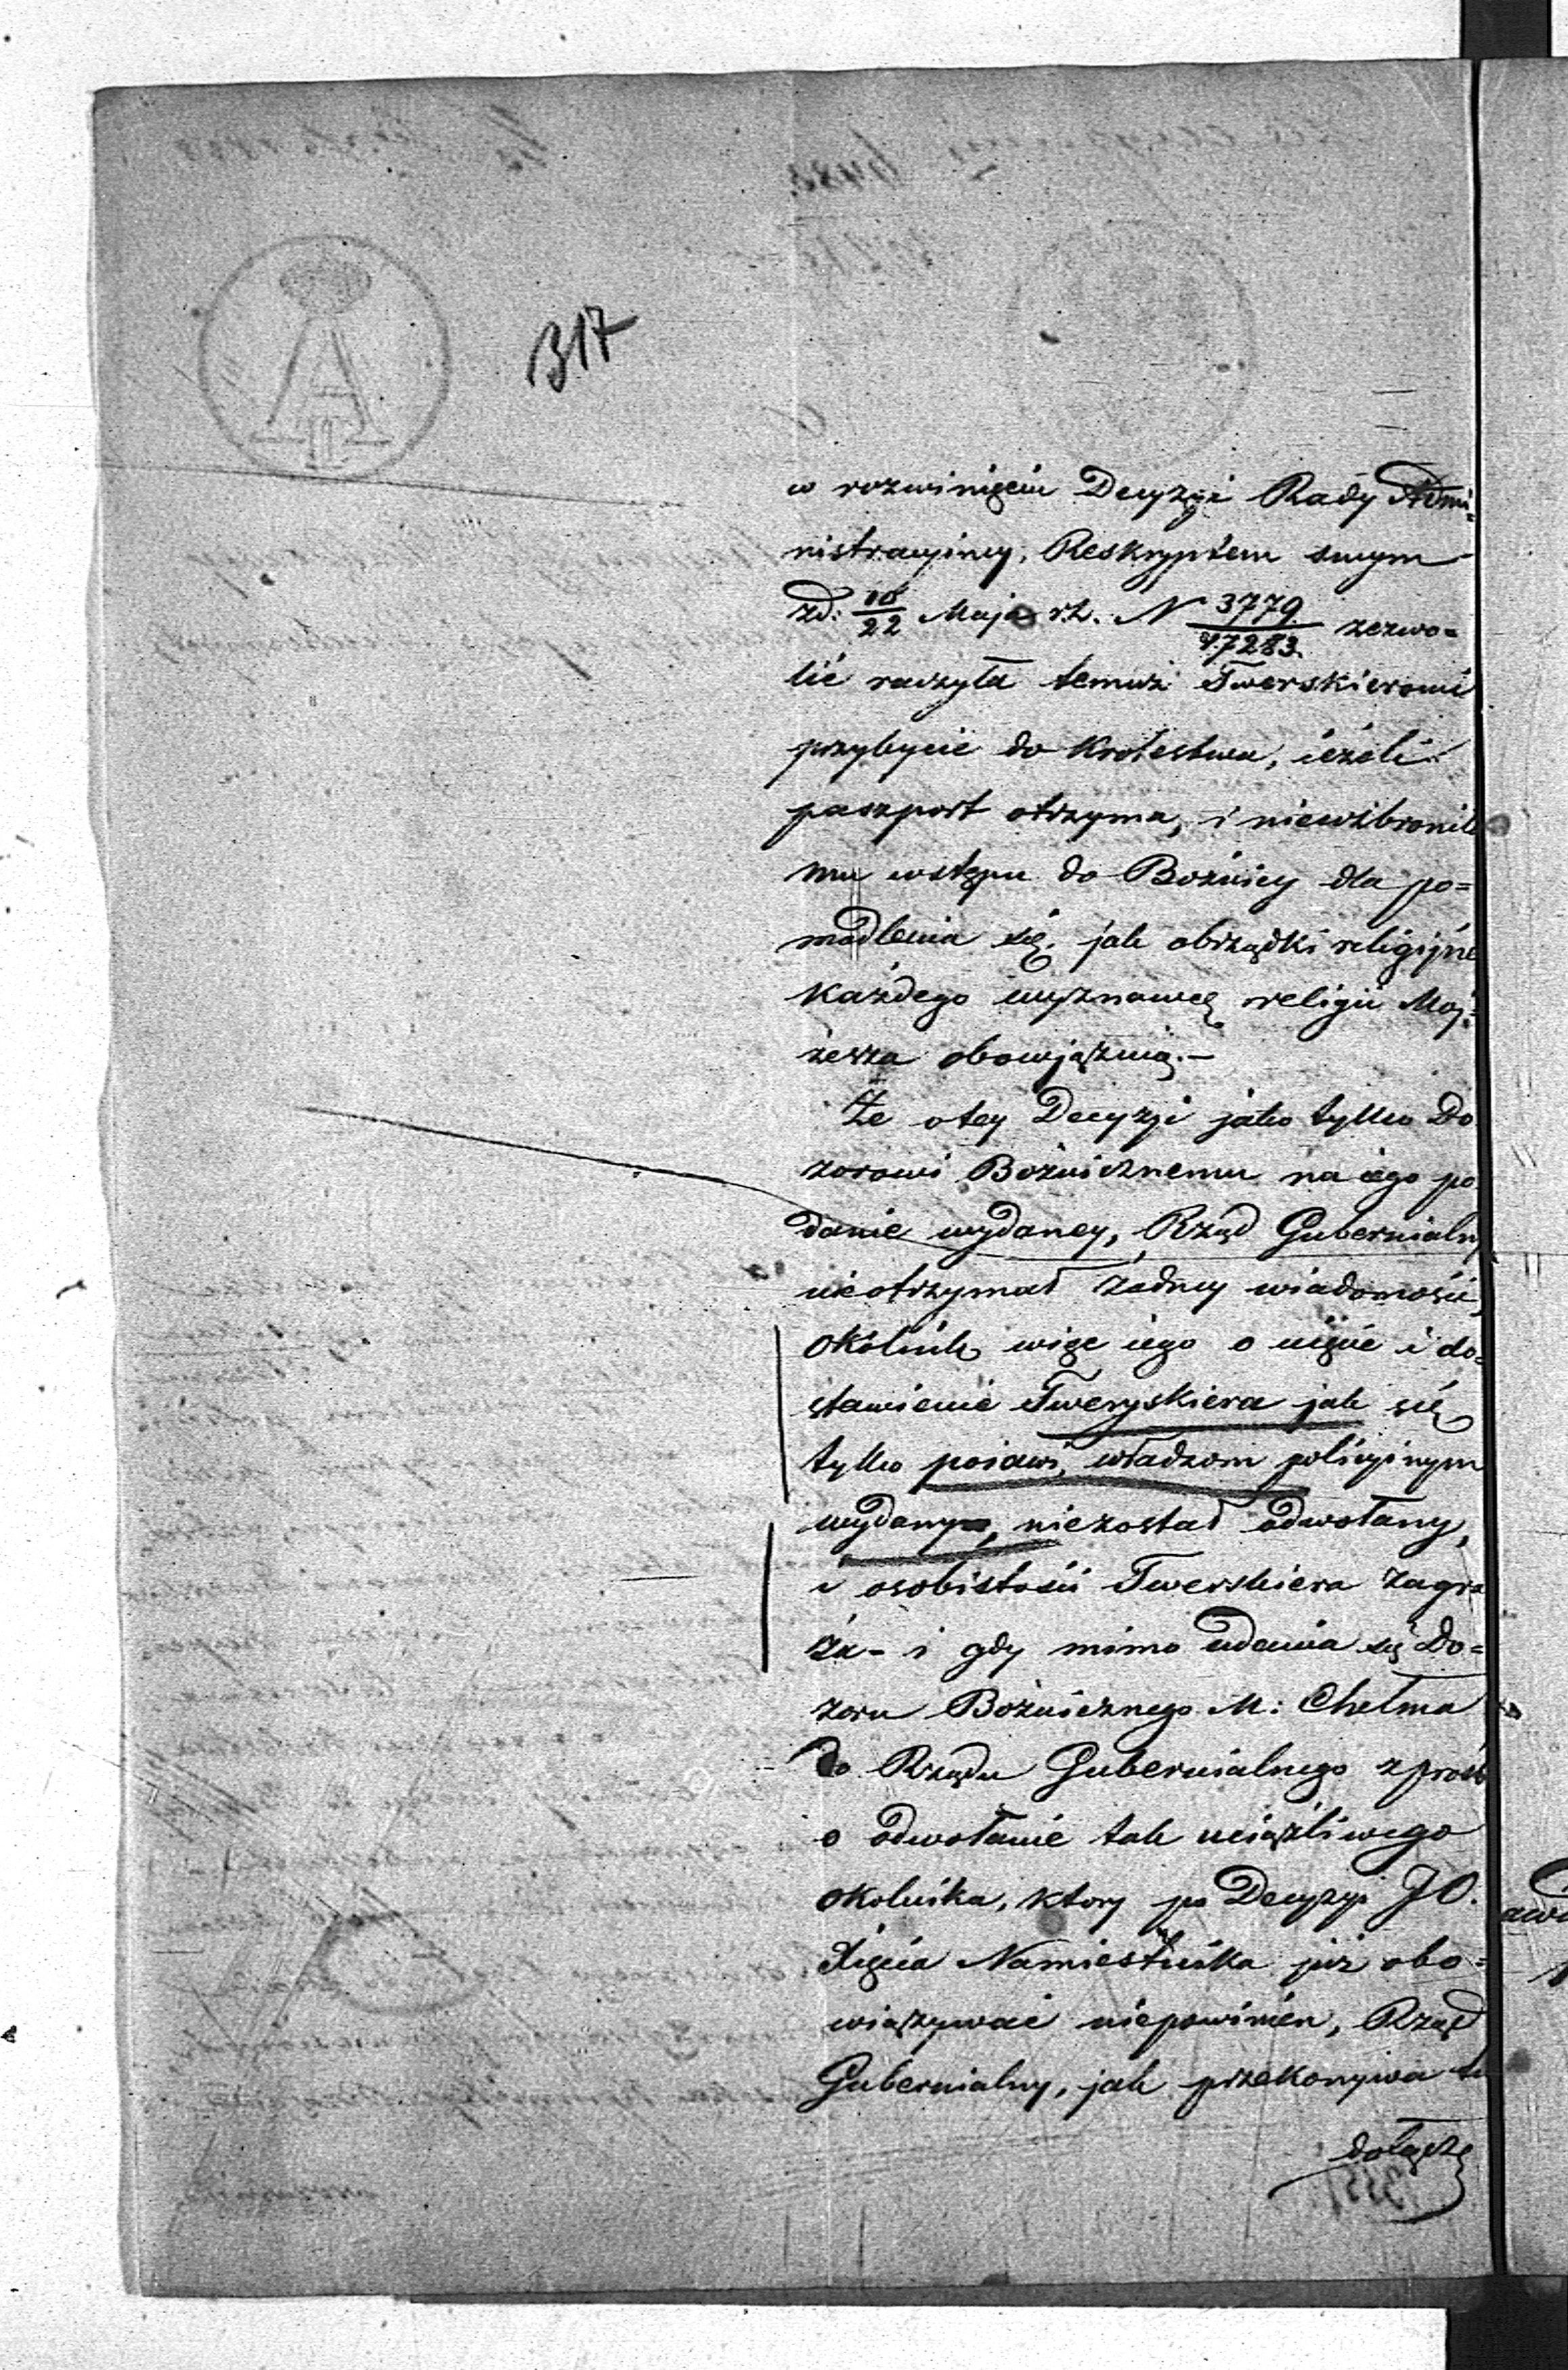 317
w rozwinięciu Decyzyi Rady Admi=
nistracyiney, Reskryptem swym
zd: 10/22 Maja r.b. N 3779/17283. zezwo=
lić raczyła temuż Twerskierowi
przybycie do Krolestwa, ieżeli
paszport otrzyma, i niewzbronić
mu wstępu do Bożnicy dla po=
modlenia się. jak obrządki religijne
każdego wyznawcę religii Moj=
żesza obowjązuią.—
Że otey Decyzyi jako tylko Do
zorowi Bożnicznemu na iego po
danie wydaney, Rząd Gubernialny
nieotrzymał żadney wiadomości,
okólnik więc iego o uięcie i do=
stawienie Tweryskiera jak się
tylko poiawi, władzom policyinym
wydany, niezostał odwołany,
i osobistości Twerskiera zagra
ża- i gdy mimo udania się Do=
zoru Bożnicznego M: Chełma
do Rządu Gubernialnego z prośb
o odwołanie tak uciążliwego
okolnika, ktory po Decyzyi JO.
Xięcia Namiestnika już obo=
wiązywać niepowinien, Rząd
Gubernialny, jak przekonywa tu
dołącze